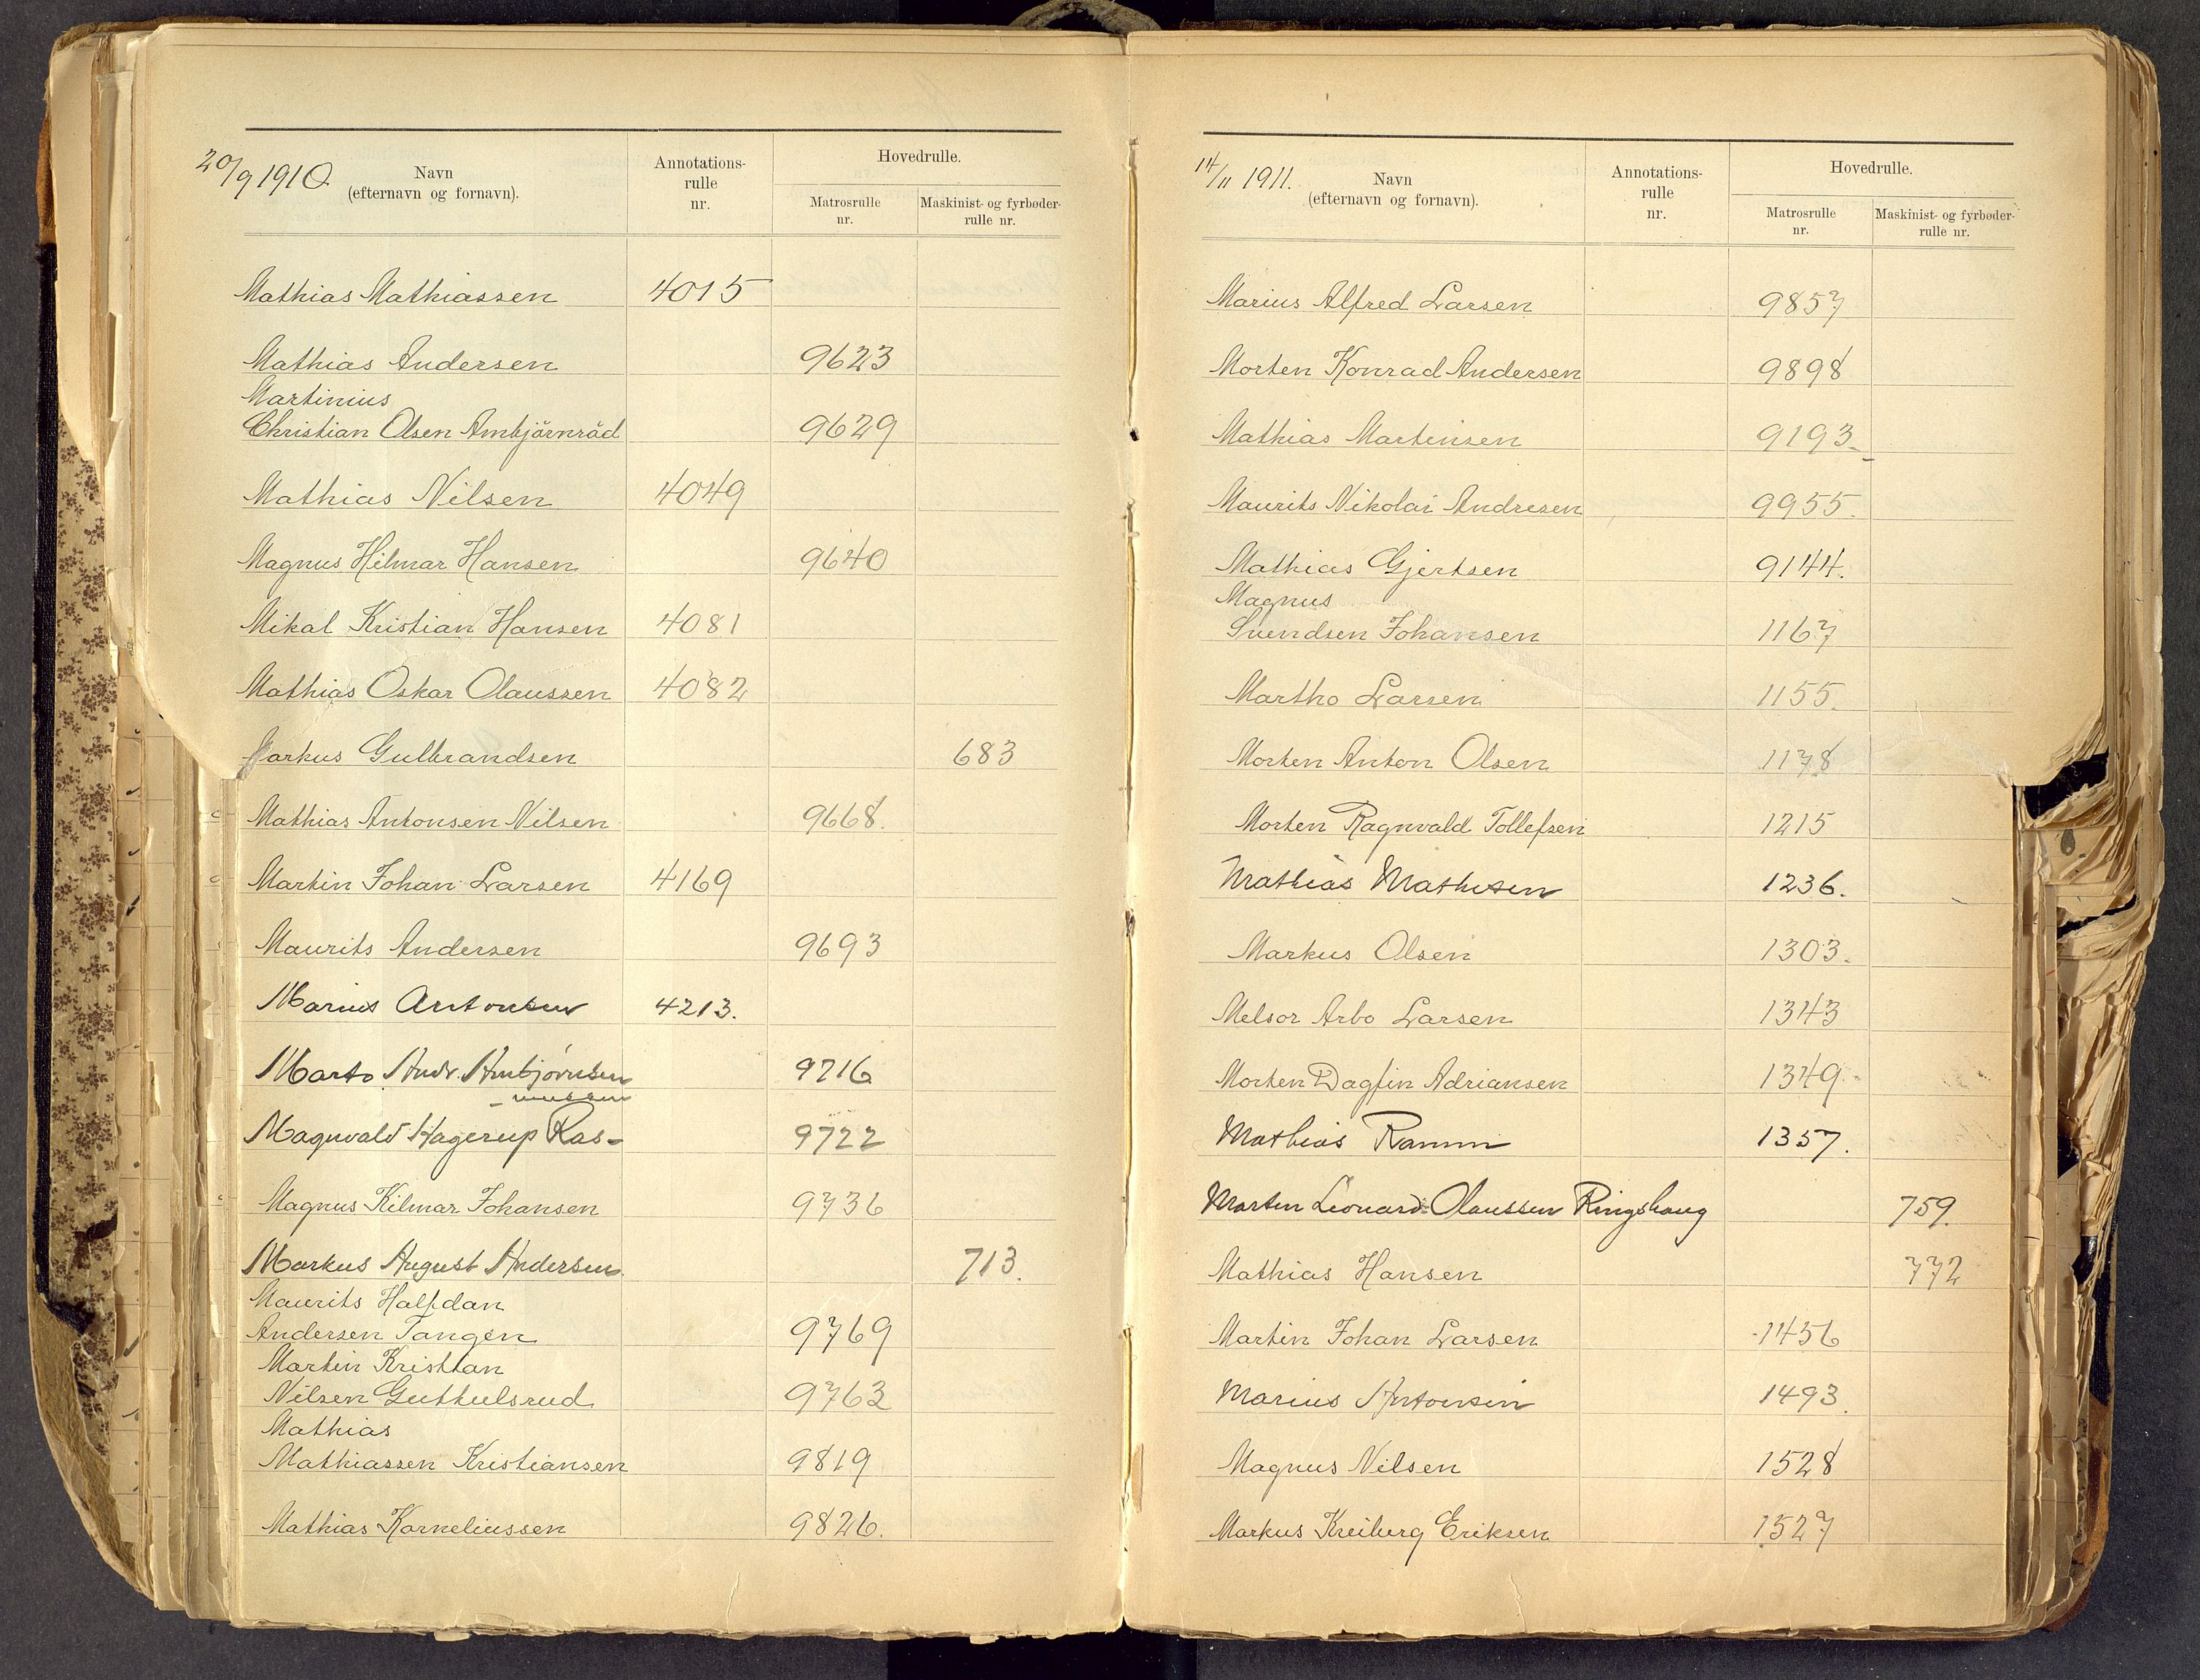 20/9 1910.
Navn
(efternavn og fornavn).
Annotations-
rulle
nr.
Hovedrulle.
Matrosrulle
nr.
Maskinist- og fyrbøder-
rulle nr.
Mathias Mathiassen 4015
Mathias Andersen 9623
Martinius
Christian Olsen Ambjörnröd 9629
Mathias Nilsen 4049
Magnus Hilmar Hansen 9640
Mikal Kristian Hansen 4081
Mathias Oskar Olaussen 4082
Markus Gulbrandsen 683
Mathias Antonsen Nilsen 9668.
Martin Johan Larsen 4169
Maurits Andersen 9693
Marius Antonsen 4213.
Marto Andr. Ambjørnsen 9716
- mussen
Magnvald Hagerup Ras- 9722
Magnus Kilmar Johansen 9736
Markus August Andersen. 713.
Maurits Halfdan
Andersen Tangen 9769
Martin Kristian
Nilsen Gutkulsrud 9763
Mathias
Mathiassen Kristiansen 9819
Mathias Korneliussen 9826.
14/11 1911.
Navn
(efternavn og fornavn).
Annotations-
rulle
nr.
Hovedrulle.
Matrosrulle
nr.
Maskinist- og fyrbøder-
rulle nr.
Marius Alfred Larsen 9857
Morten Konrad Andersen 9898
Mathias Martinsen 9193.
Maurits Nikolai Andresen 9955.
Mathias Gjertsen 9144.
Magnus
Svendsen Johansen 1167
Martho Larsen 1155.
Morten Anton Olsen 1178
Morten Ragnvald Tollefsen 1215
Mathias Mathisen 1236.
Markus Olsen 1303.
Melsor Arbo Larsen 1343
Morten Dagfin Adriansen 1349.
Mathias Ramm 1357.
Morten Leonard Olaussen Ringshaug 759.
Mathias Hansen 772
Martin Johan Larsen 1456
Marius Antonsen 1493.
Magnus Nilsen 1528
Markus Kreiberg Eriksen 1527